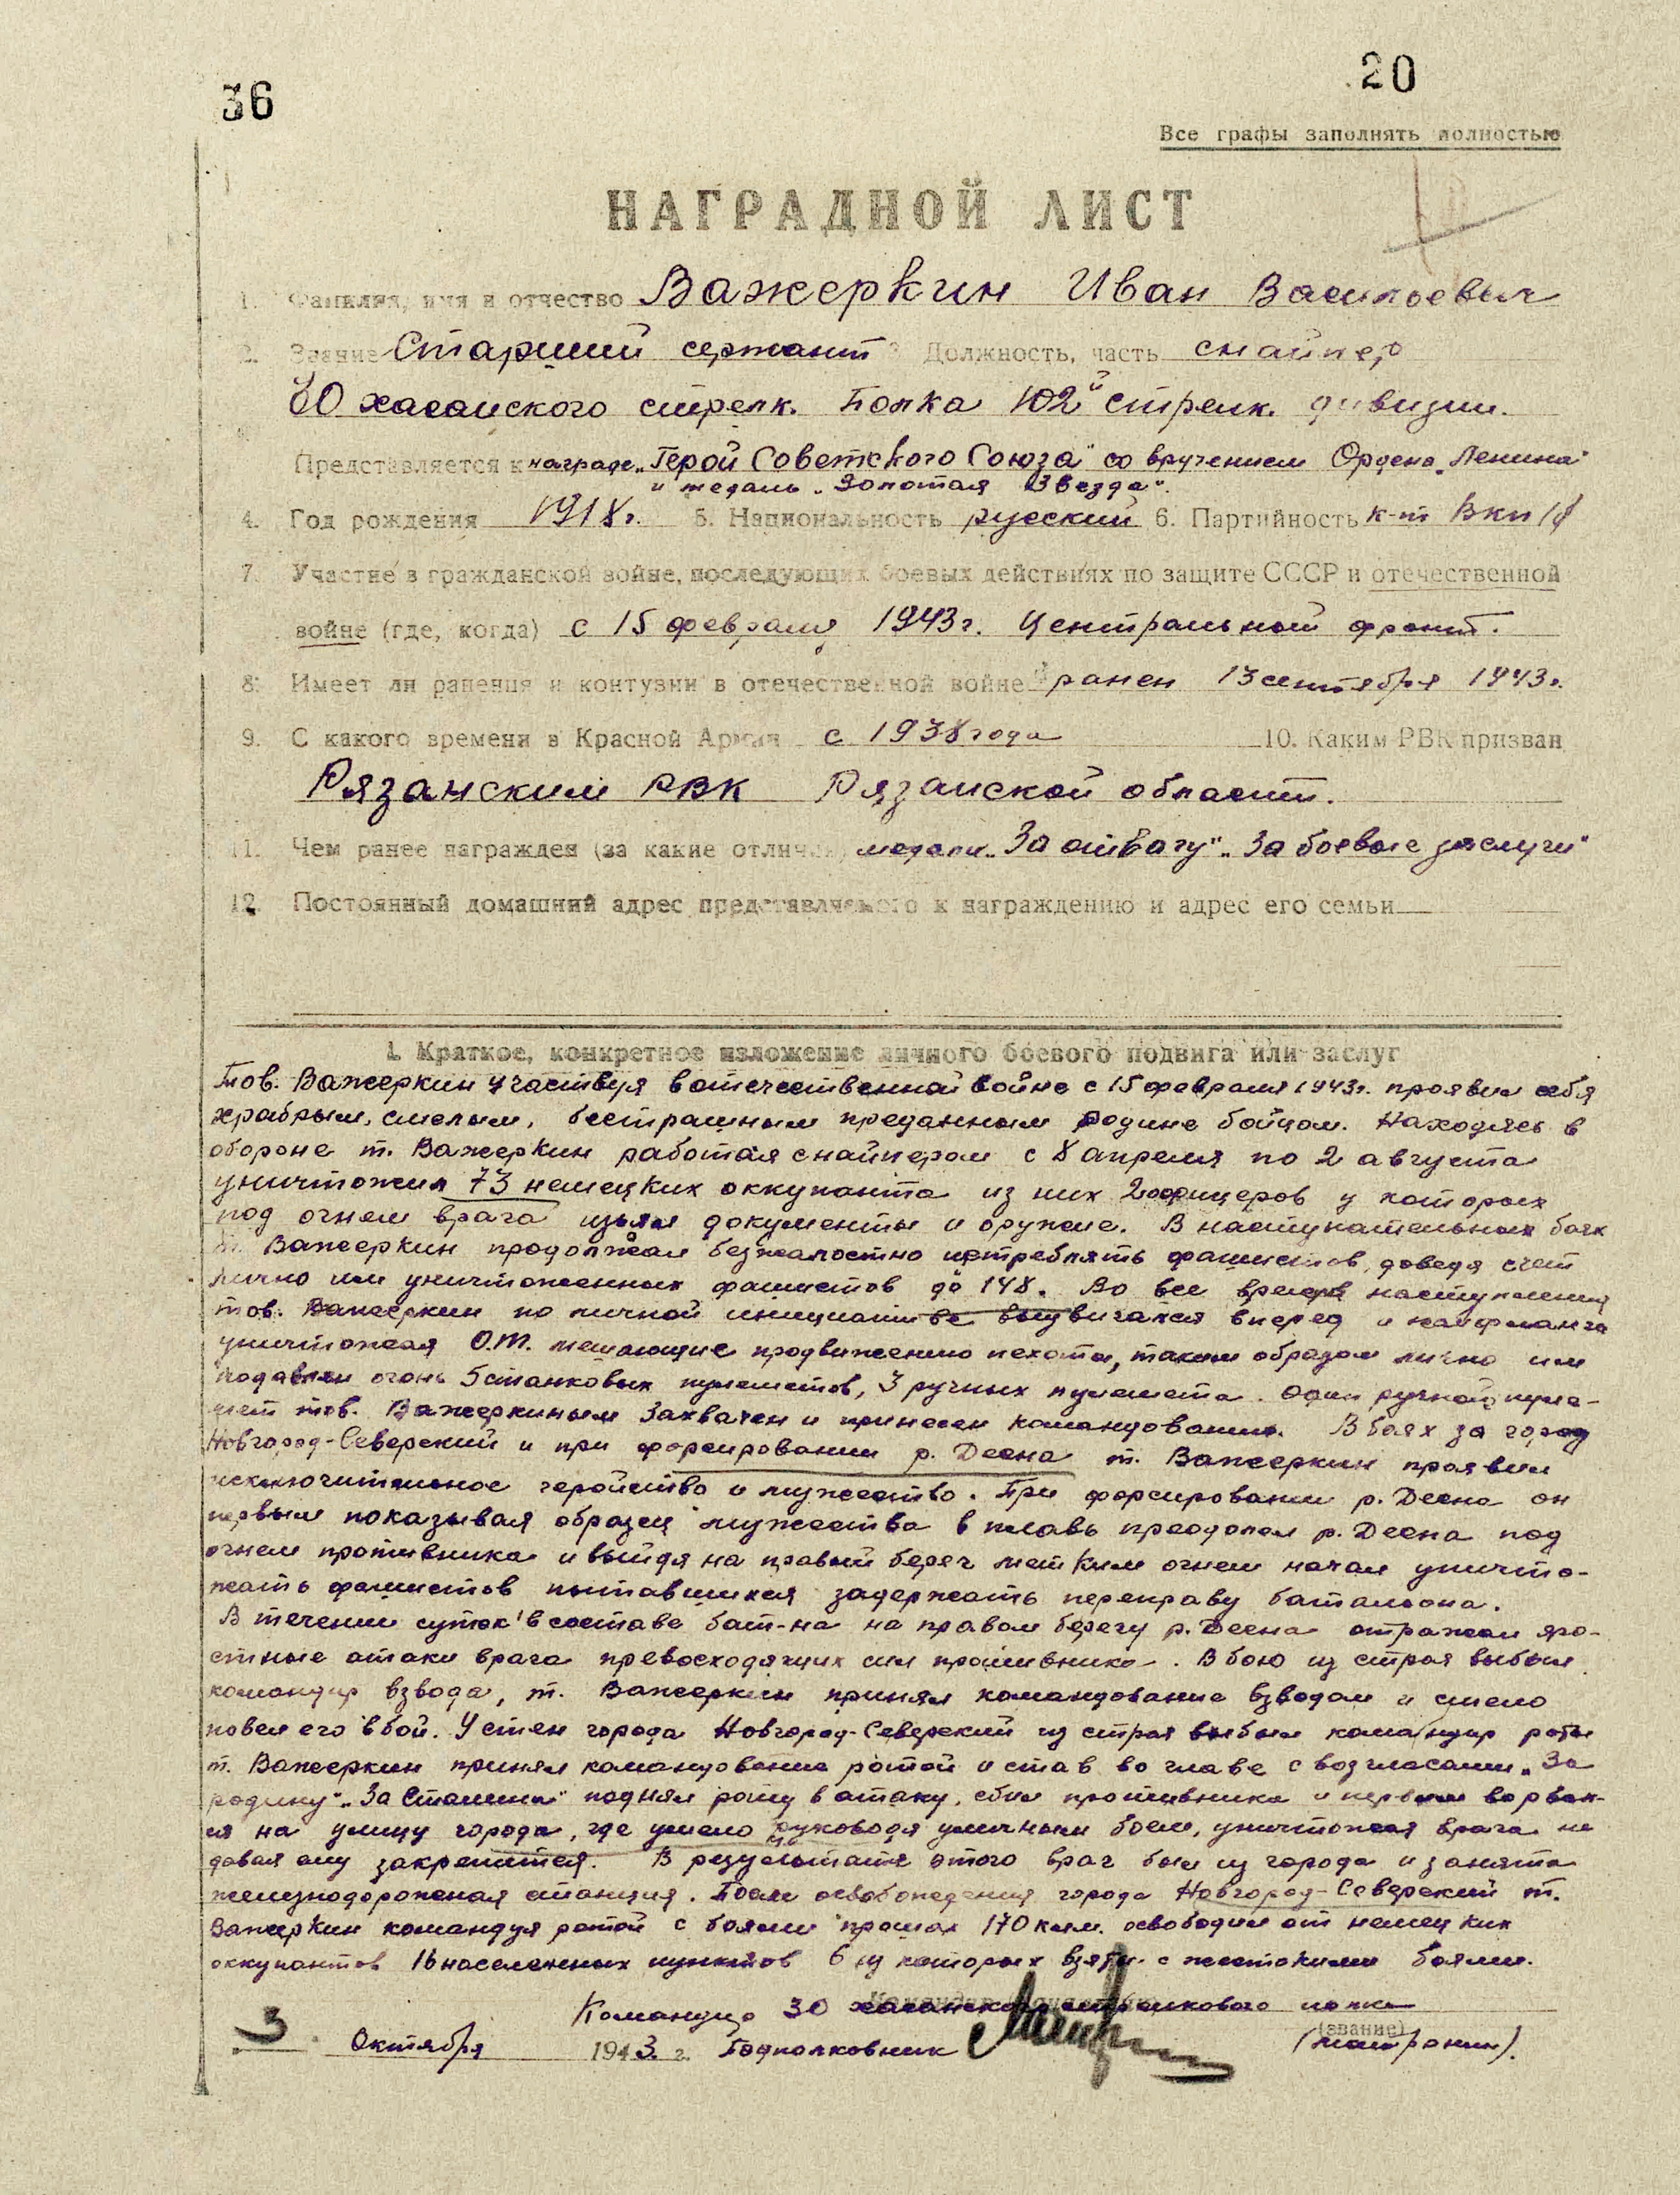 36
20
Все графы заполнять полностью
НАГРАДНОЙ ЛИСТ
1. Фамилия, имя и отчество Важеркин Иван Васильевич
2. Звание Старший сержант 3 Должность, часть снайпер
30 хасанского стрелк. Полка 102й стрелк. дивизии.
Представляется к награде „Герой Советского Союза" со вручением Ордена „Ленина"
и медаль „Золотая Звезда".
4. Год рождения 1918г. 5. Национальность русский 6. Партийность к-т ВКП/б
7. Участие в гражданской войне, последующих боевых действиях по защите СССР и отечественной
войне (где, когда) с 15 февраля 1943г. Центральной фронт.
8. Имеет ли ранения и контузии в отечественной войне ранен 13 сентября 1943г.
9. С какого времени в Красной Армии с 1938 года 10. Каким РВК призван
Рязанским РВК Рязанской област.
11. Чем ранее награжден (за какие отличия) медали „За отвагу" „За боевые заслуги"
12. Постоянный домашний адрес представляемого к награждению и адрес его семьи
1. Краткое, конкретное изложение личного боевого подвига или заслуг
Тов. Важеркин участвуя в отечественной войне с 15 февраля 1943г. проявил себя
храбрым, смелым, бестрашным преданным родине бойцом. Находясь в
обороне т. Важеркин работая снайпером с 8 апреля по 2 августа
уничтожил 73 немецких оккупанта из них 2 офицеров у которых
под огнем врага изъял документы и оружие. В наступательных боях
т. Важеркин продолжал безжалостно истреблять фашистов, доведя счет
лично им уничтоженных фашистов до 148. Во все время наступления
тов. Важеркин по личной инициативе выдвигался вперед и на фланга
уничтожая О.Т. мешающие продвижению пехоты, таким образом лично им
подавлен огонь 5 станковых пулеметов, 3 ручных пулемета. Один ручной пуле-
мет тов. Важеркиным захвачен и принесен командованию. В боях за город
Новгород-Северский и при форсировании р. Десна т. Важеркин проявил
исключительное геройство и мужество. При форсировании р. Десна он
первым показывая образец мужества в плавь преодолел р. Десна под
огнем противника и выйдя на правый берег метким огнем начал уничто-
жать фашистов пытавшихся задержать переправу батальона.
В течении суток в составе бат-на на правом берегу р. Десна отражал яро-
стные атаки врага превосходящих сил противника. В бою из строя выбыл
командир взвода, т. Важеркин принял командование взводом и смело
повел его в бой. У стен города Новгород-Северский из строя выбыл командир роты
т. Важеркин принял командование ротой и став во главе с возгласами „За
родину" „За Сталина" поднял роту в атаку, сбил противника и первым ворвал-
ся на улицу города, где умело руководя уличным боем, уничтожая врага не
давая ему закрепится. В результате этого враг был из города и занята
железнодорожная станция. После освобождения города Новгород-Северский т.
Важеркин командуя ротой с боями прошел 170 клм. освободил от немецких
оккупантов 16 населенных пунктов 6 из которых взяты с жестокими боями.
Командир 30 хасанского стрелкового полка
(звание)
3 Октября 1943 г. Подполковник